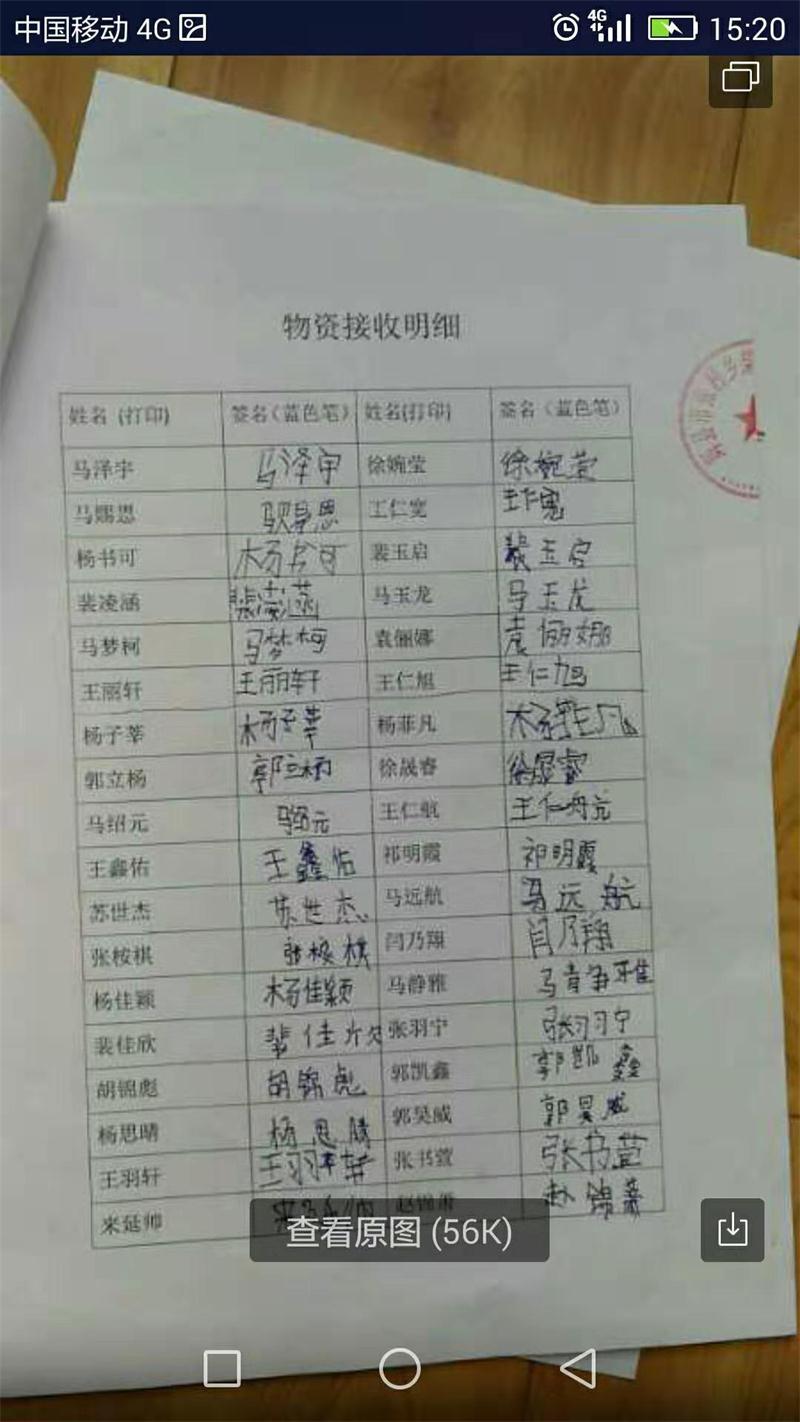 中国移动 4G 4G 15:20
物资接收明细
姓名 (打印) 签名（蓝色笔） 姓名(打印) 签名（蓝色笔）
马泽宇 马泽宇 徐婉莹 徐婉莹
马赐恩 马赐恩 王仁宽 王仁宽
杨书可 杨书可 裴玉启 裴玉启
裴凌涵 马玉龙 马玉龙
马梦柯 马梦柯 袁俪娜 袁俪娜
王丽轩 王丽轩 王仁旭 王仁旭
杨子莘 杨子莘 杨菲凡 杨菲凡
郭立杨 郭立杨 徐晟睿 徐晟睿
马绍元 马绍元 王仁航 王仁航
王鑫佑 王鑫佑 祁明霞 祁明霞
苏世杰 苏世杰 马远航 马远航
张桉棋 张桉棋 闫乃翔 闫乃翔
杨佳颖 杨佳颖 马静雅 马静雅
裴佳欣 裴佳欣 张羽宁 张羽宁
胡锦彪 胡锦彪 郭凯鑫 郭凯鑫
杨思晴 杨思晴 郭昊威 郭昊威
王羽轩 王羽轩 张书萱 张书萱
来延帅
查看原图 (56K)